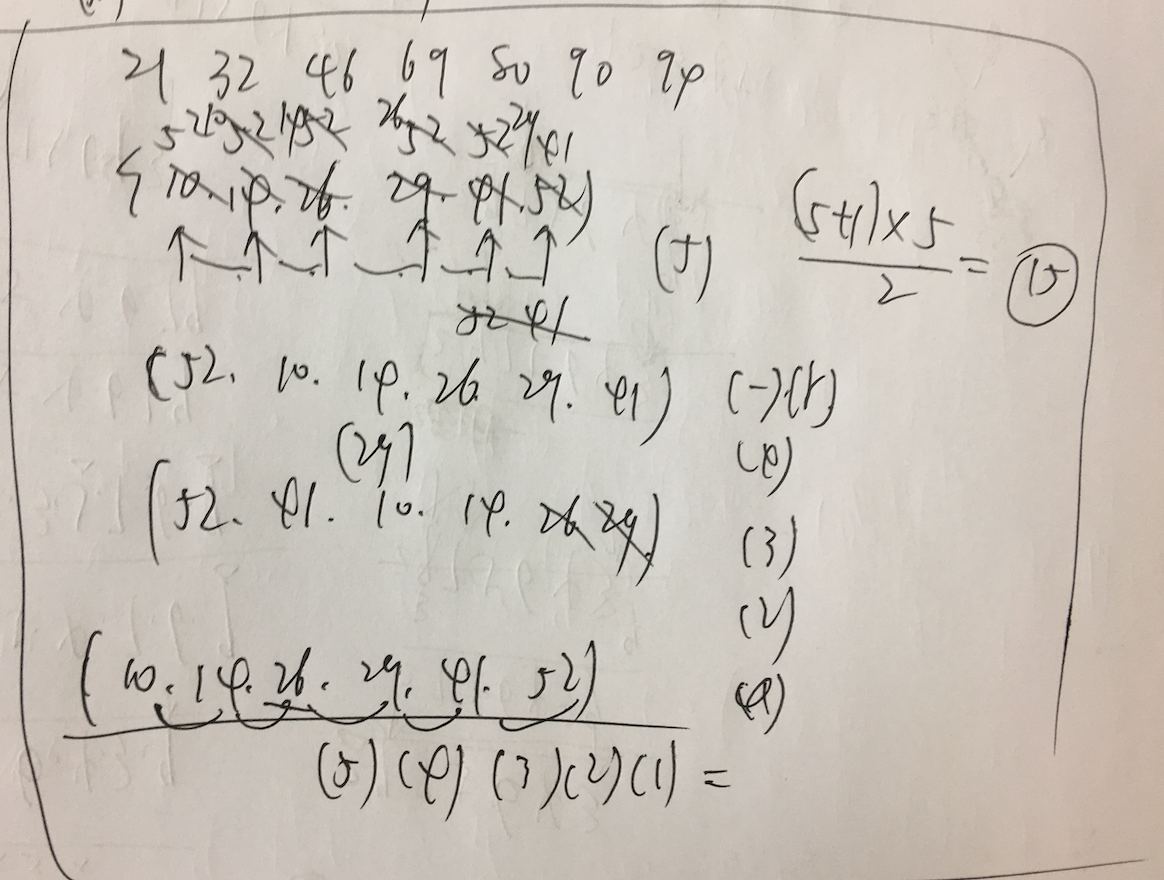 21 32 46 69 80 90 94
{ 10. 14. 26. 29. 41. 52)
(5) (5+1)×5 / 2 = 15
52 41
(52. 10. 14. 26. 29. 41)
(29) (4)
(52. 41. 10. 14. 26 29)
(3)
(2)
(10. 14. 26. 29. 41. 52)
(5) (4) (3) (2) (1) =